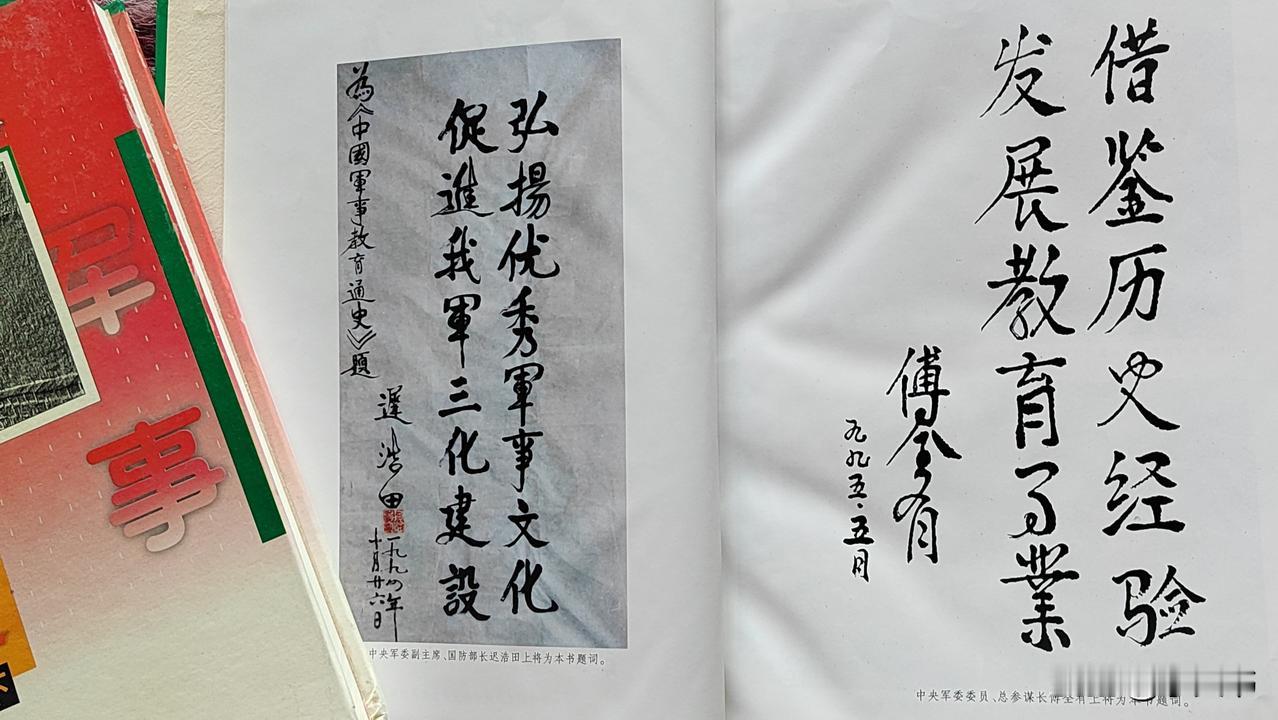 軍
事
為《中國軍事教育通史》題
弘揚优秀軍事文化
促進我軍三化建設
遲浩田
一九九四年
十月廿六日
中央军委副主席、国防部长迟浩田上将为本书题词。
借鉴历史经验
发展教育事業
傅全有
九九五·五月
中央军委委员、总参谋长傅全有上将为本书题词。